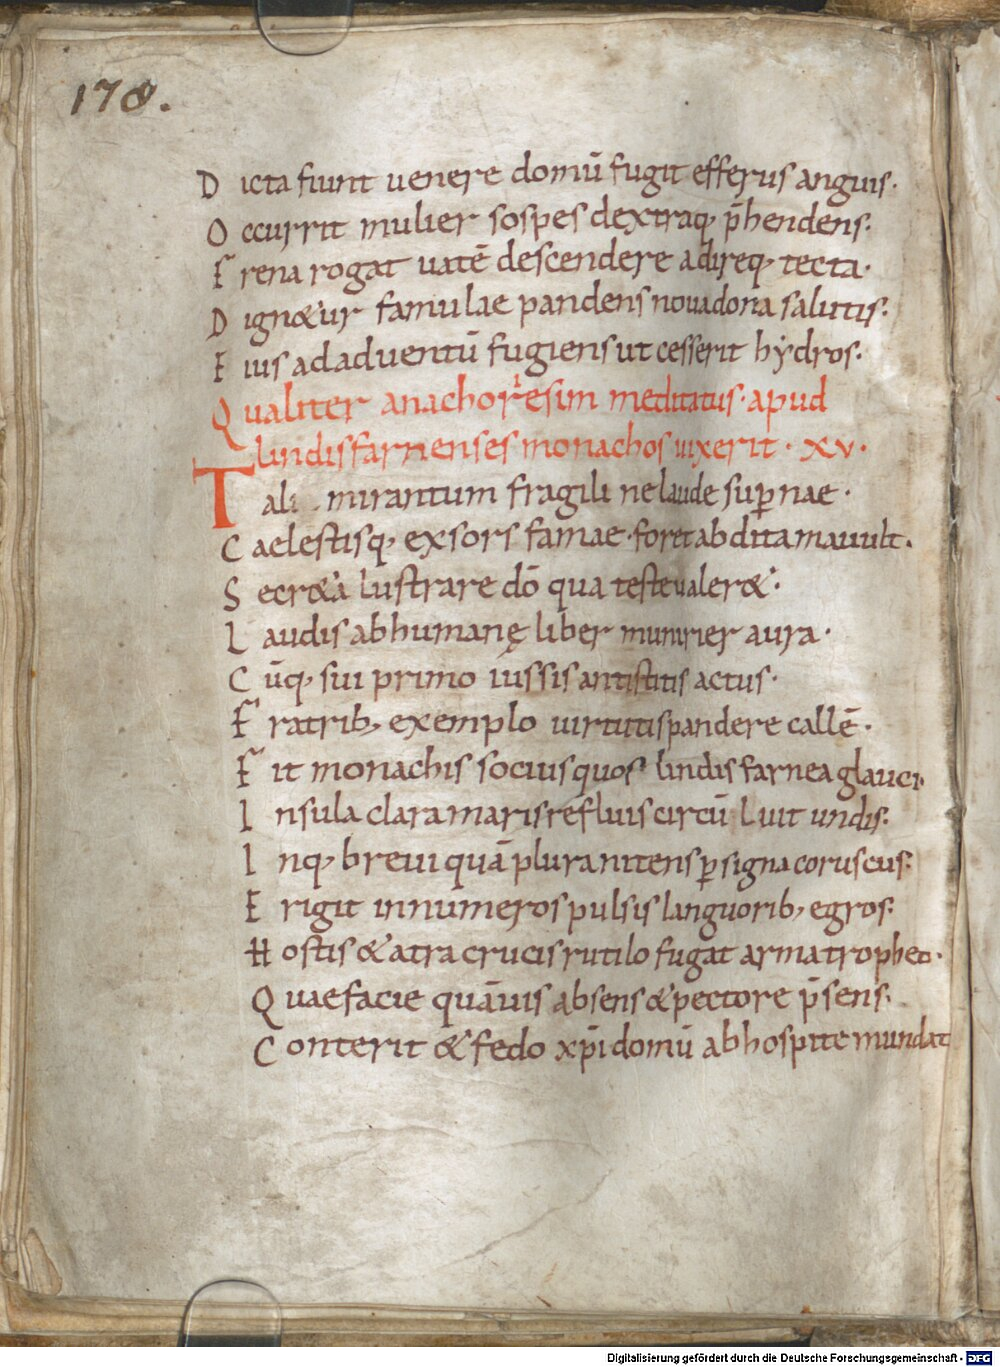 178.
D icta fiunt uenere domū fugit efferus anguis.
O ccurrit mulier sospes dextraq; p̄hendens.
F rena rogat uatē descendere adireq; tecta.
D ign&ur famulae pandens noua dona salutis.
E ius ad aduentū fugiens ut cesserit hẏdros.
Q ualiter anachoresim meditatus. apud
lindisfarnenses monachos uixerit. xv.
T ali mirantum fragili ne laude supernae.
C aelestisq; exsors famae. foret abdita mauult.
S ecr&a lustrare dō qua teste ualer&.
L audis ab humanę liber munirier aura.
C ūq; sui primo iussis antistitis actus.
F ratrib; exemplo uirtutis pandere callē.
F it monachis socius quos lindisfarnea glauci.
I nsula clara maris refluis circū luit undis.
I nq; breui quā plura nitens p̱ signa coruscus.
E rigit innumeros pulsis languorib; egros.
H ostis & atra crucis rutilo fugat arma tropheo.
Q uae facie quāuis absens & pectore p̄sens.
C onterit & fedo xp̄i domū ab hospite mundat
Digitalisierung gefördert durch die Deutsche Forschungsgemeinschaft - DFG